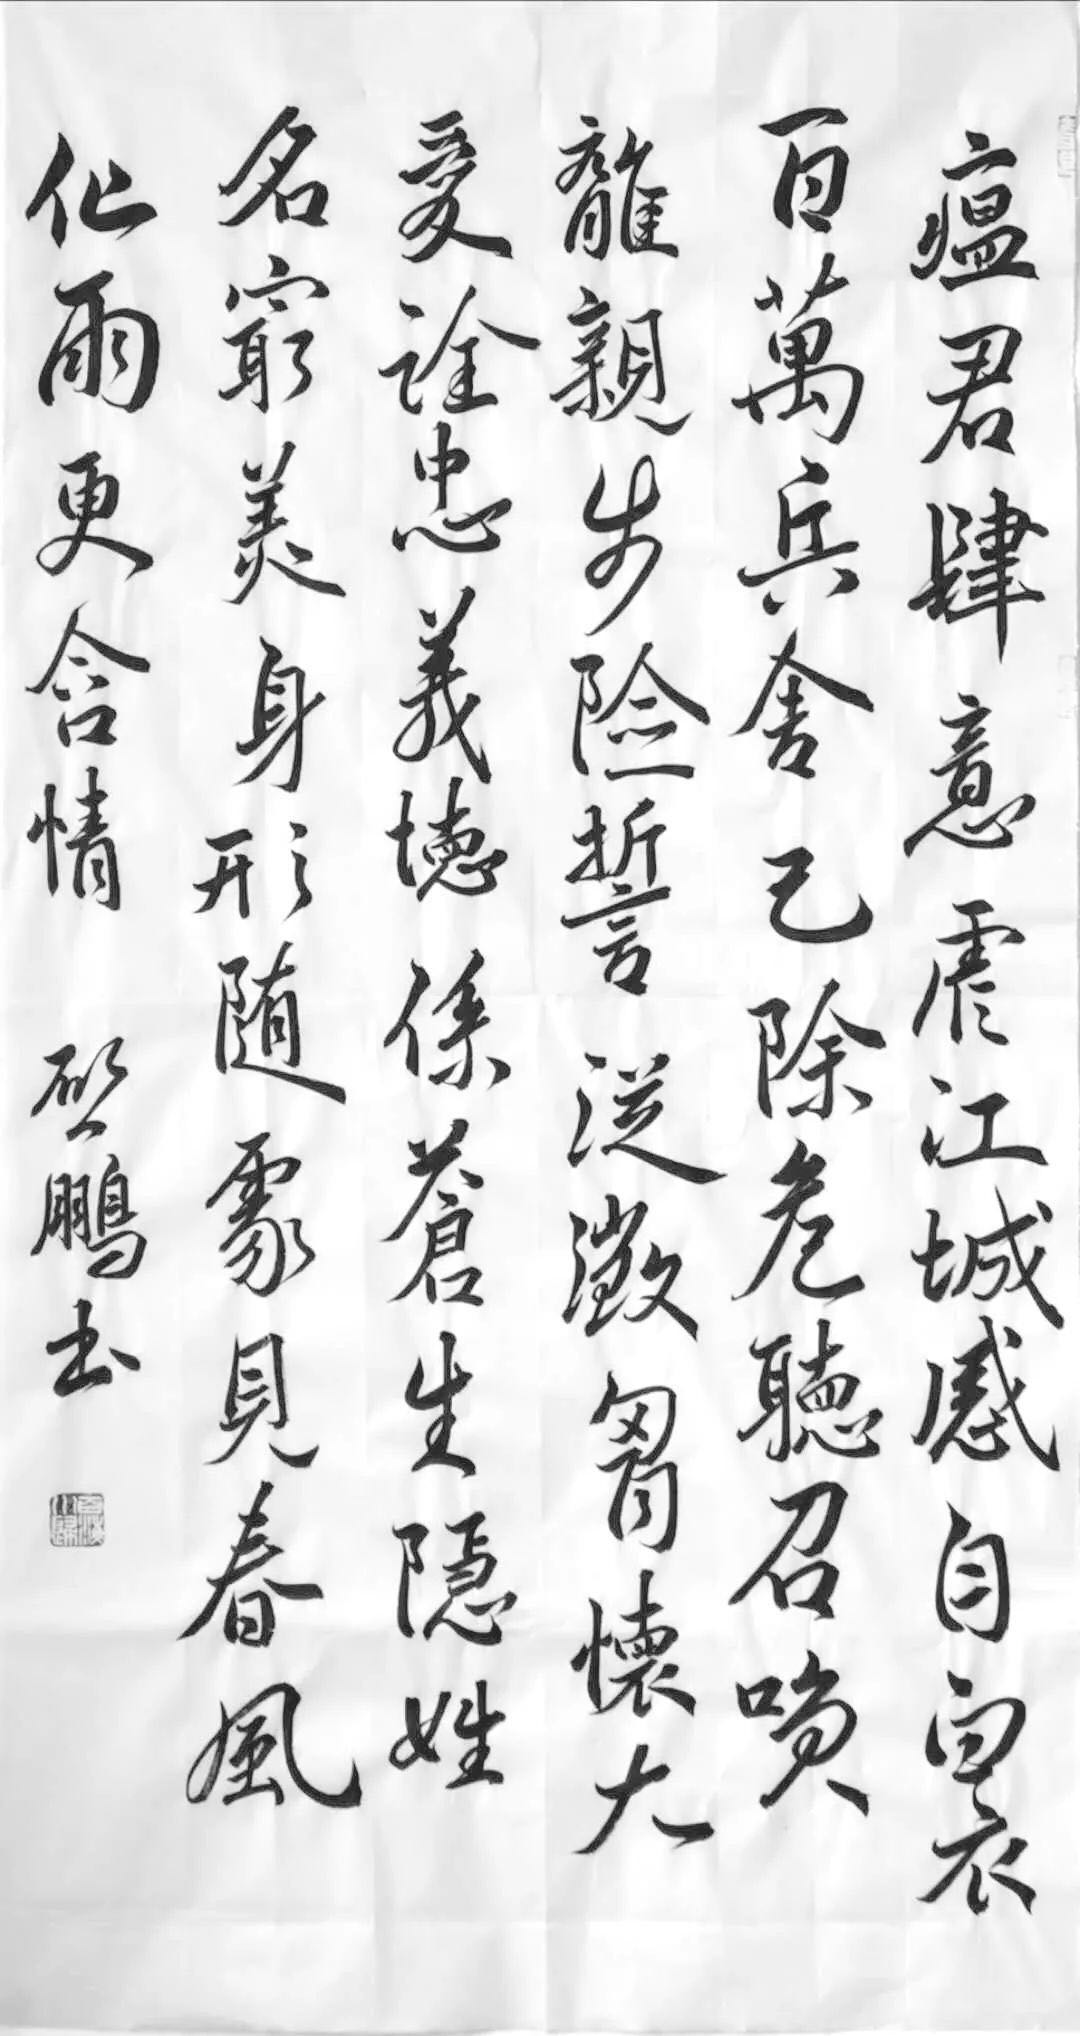 瘟君肆意虐江城感自白衣
百萬兵舍己除危聽召喚
離親步險誓從徵胷懷大
愛詮忠義德係蒼生隱姓
名窮美身形随處見春風
化雨更含情 啟鵬书